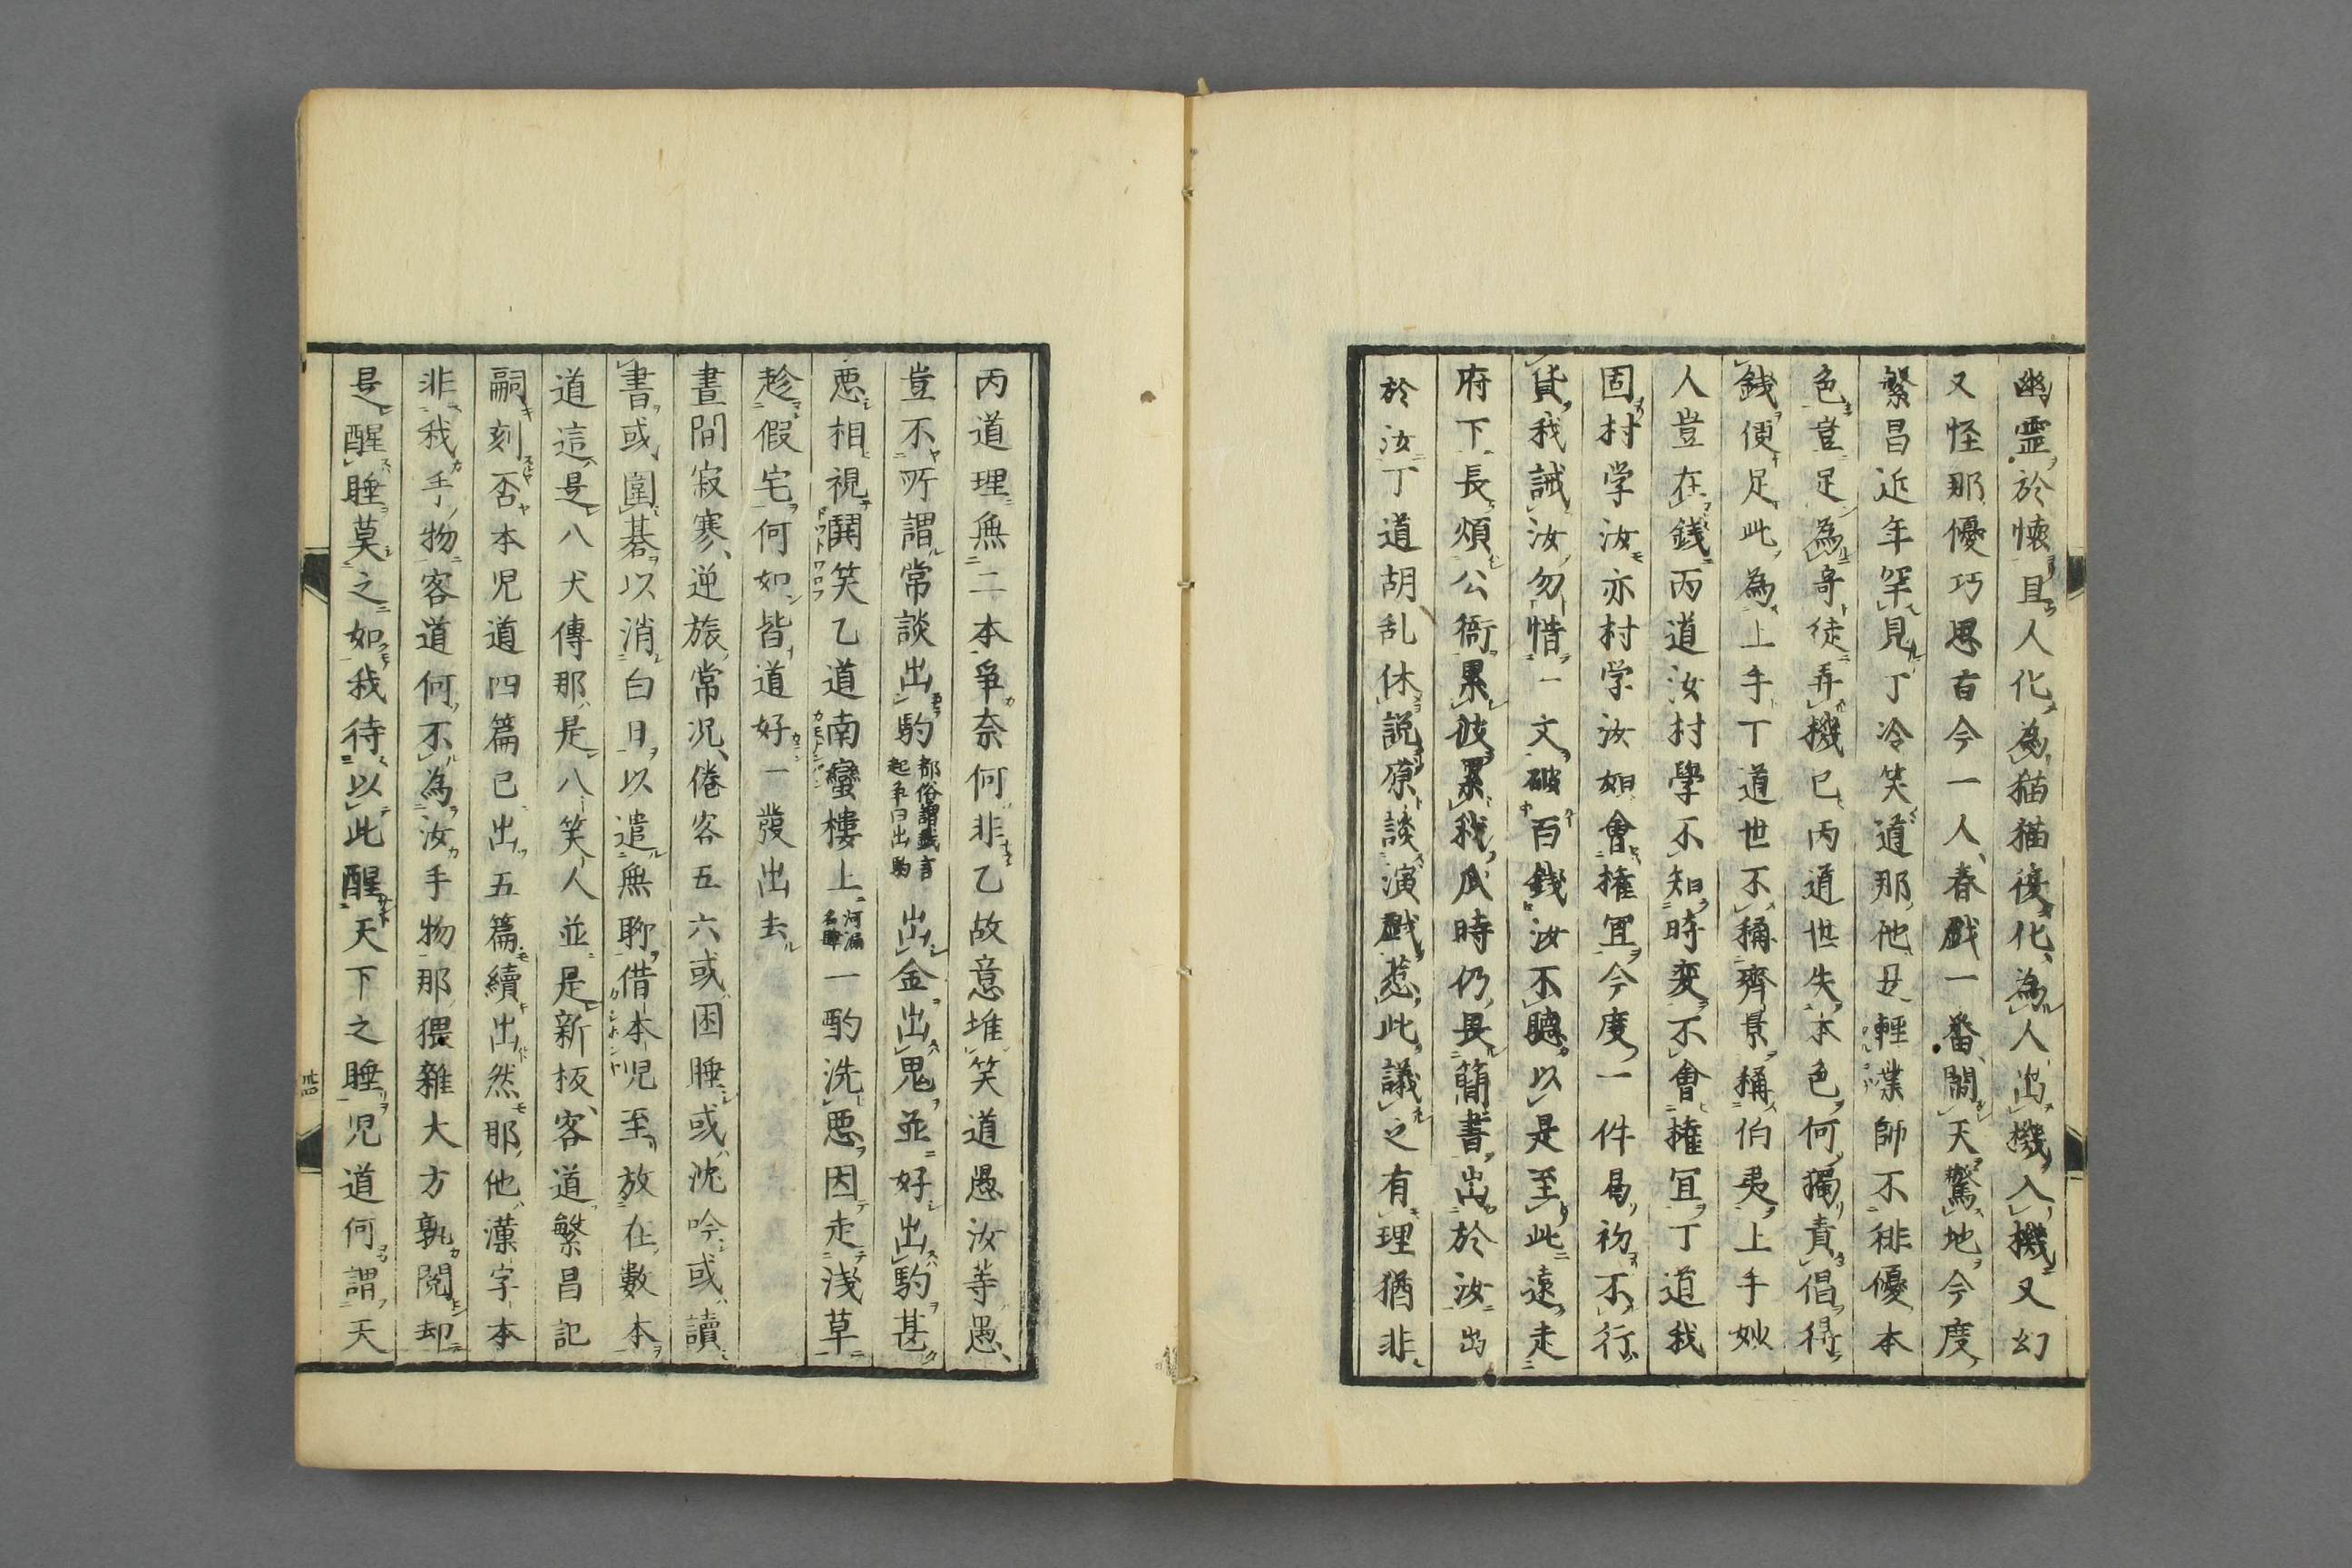 幽霊於懐且人化為猫猫復化為人出機入機又幻
又怪那優巧思百今一人春戯一番間天驚地今度
繁昌近年罕見丁冷笑道那他丑輕喋師不徘優本
色豈足為奇徒弄機已丙道世失本色何獨責倡得
銭便足此為上手丁道世不稱齊景稱伯夷上手妙
人豈在銭丙道汝村學不知時変不會権宜丁道我
固村学汝亦村学汝如會権宜今度一件曷初不行
貨我誡汝勿惜一文破百銭汝不聽以是至此遠走
府下長煩公衙累彼累我瓜時仍畏簡書出於汝出
於汝丁道胡乱休説原談演戯惹此議之有理猶非
丙道理無二本爭奈何非乙故意堆笑道愚汝等愚
豈不所謂常談出駒都俗謂戯言起爭曰出駒出金出鬼並好出駒甚
悪相視鬨笑乙道南蠻樓上河漏名肆一酌洗悪因走淺草
趁假宅何如皆道好一發出去
晝間寂寒逆旅常況倦客五六或困睡或沈吟或讀
書或圍碁以消白日以遣無聊借本児至放在數本
道這是八犬傳那是八笑人並是新板客道繁昌記
嗣刻否本児道四篇已出五篇續出然那他漢字本
非我手物客道何不為汝手物那猥雜大方孰閲却
是醒睡莫之如我待以此醒天下之睡児道何謂天